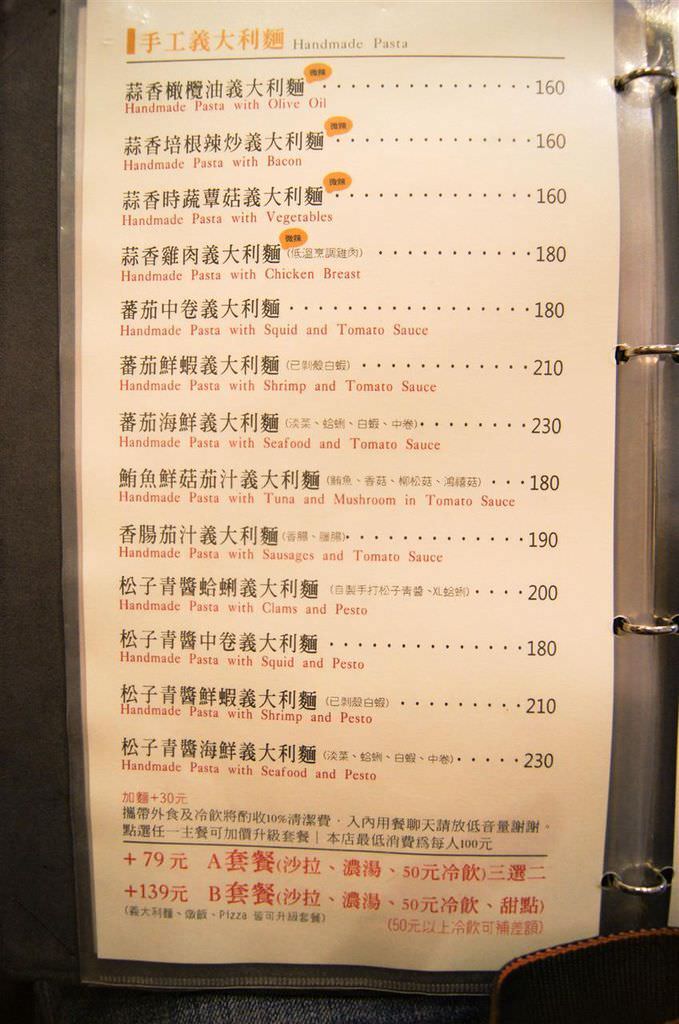 手工義大利麵 Handmade Pasta
微辣
蒜香橄欖油義大利麵 160
Handmade Pasta with Olive Oil
微辣
蒜香培根辣炒義大利麵 160
Handmade Pasta with Bacon
微辣
蒜香時蔬蕈菇義大利麵 160
Handmade Pasta with Vegetables
微辣
蒜香雞肉義大利麵(低溫烹調雞肉) 180
Handmade Pasta with Chicken Breast
蕃茄中卷義大利麵 180
Handmade Pasta with Squid and Tomato Sauce
蕃茄鮮蝦義大利麵(已剝殼白蝦) 210
Handmade Pasta with Shrimp and Tomato Sauce
蕃茄海鮮義大利麵(淡菜、蛤蜊、白蝦、中卷) 230
Handmade Pasta with Seafood and Tomato Sauce
鮪魚鮮菇茄汁義大利麵(鮪魚、香菇、柳松菇、鴻禧菇) 180
Handmade Pasta with Tuna and Mushroom in Tomato Sauce
香腸茄汁義大利麵(香腸、臘腸) 190
Handmade Pasta with Sausages and Tomato Sauce
松子青醬蛤蜊義大利麵(自製手打松子青醬、XL蛤蜊) 200
Handmade Pasta with Clams and Pesto
松子青醬中卷義大利麵 180
Handmade Pasta with Squid and Pesto
松子青醬鮮蝦義大利麵(已剝殼白蝦) 210
Handmade Pasta with Shrimp and Pesto
松子青醬海鮮義大利麵(淡菜、蛤蜊、白蝦、中卷) 230
Handmade Pasta with Seafood and Pesto
加麵+30元
攜帶外食及冷飲將酌收10%清潔費，入內用餐聊天請放低音量謝謝。
點選任一主餐可加價升級套餐｜本店最低消費為每人100元
+79元 A套餐(沙拉、濃湯、50元冷飲)三選二
+139元 B套餐(沙拉、濃湯、50元冷飲、甜點)
(義大利麵、燉飯、Pizza 皆可升級套餐) (50元以上冷飲可補差額)